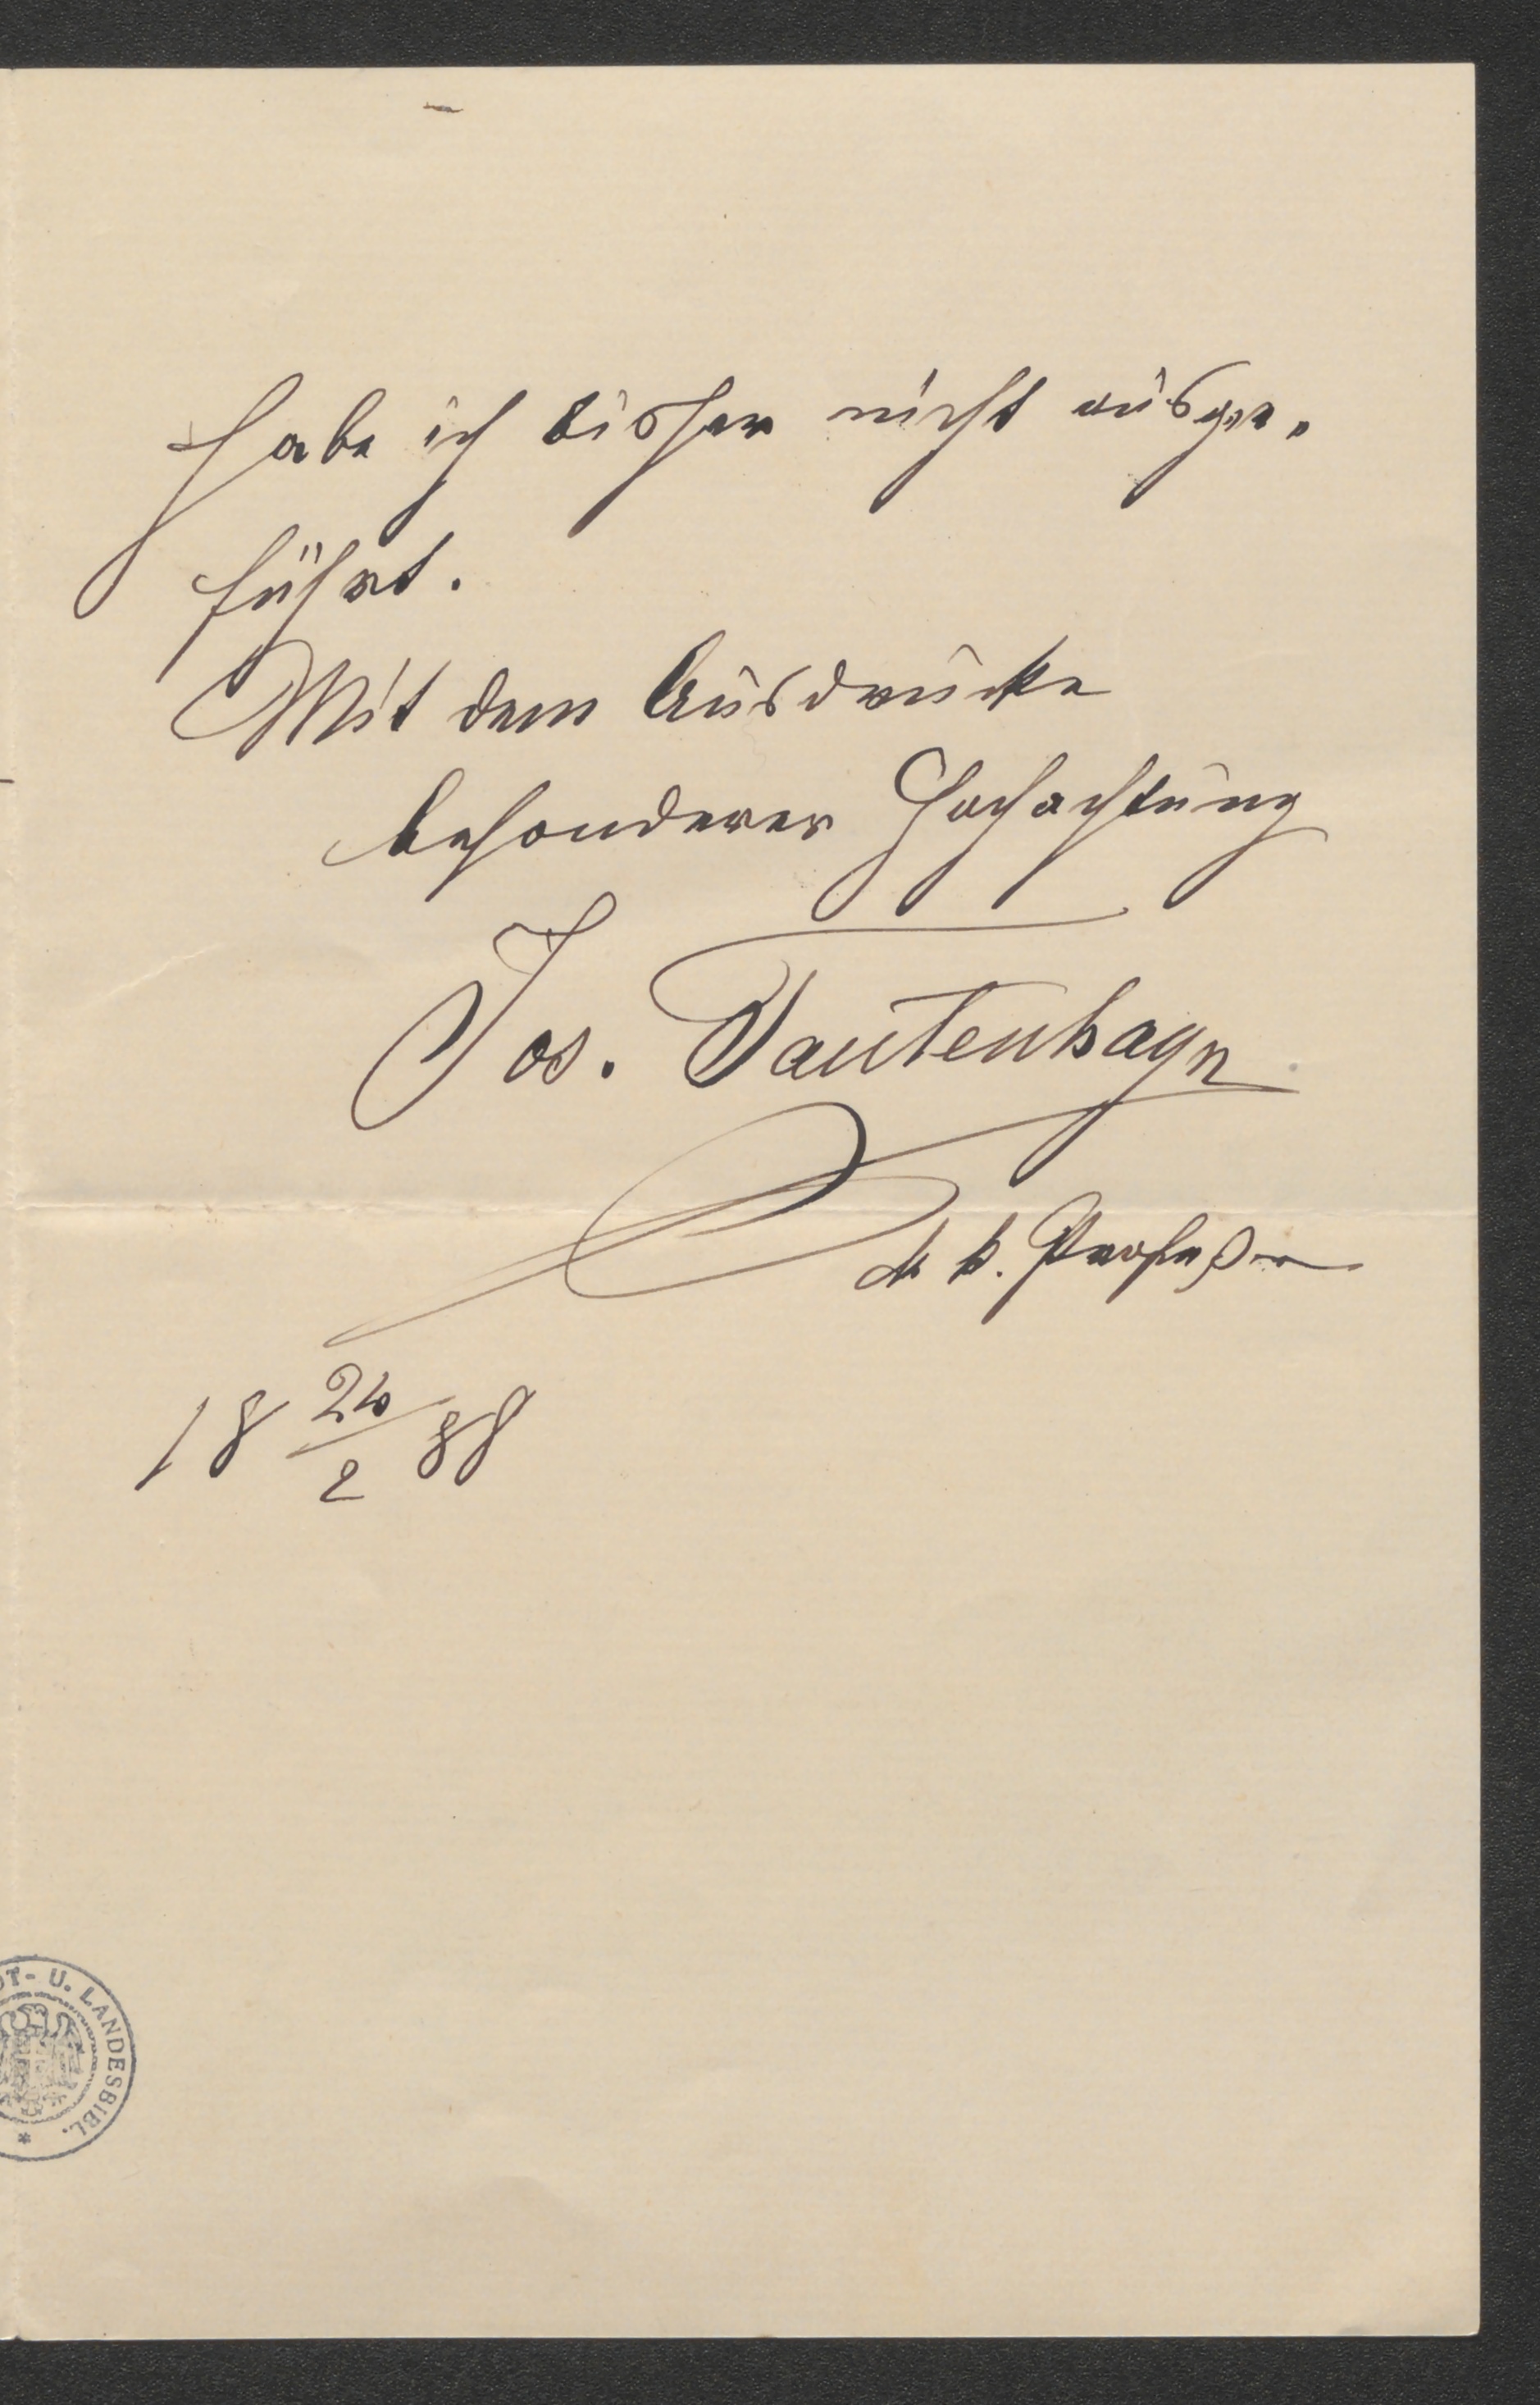 habe ich bisher nicht ausge-
führt.
Mit dem Ausdrucke
besonderer Hochachtung
Jos. Tautenhayn
k. k. Profeßor
18 24/2 88
DT- U. LANDESBIBL. *